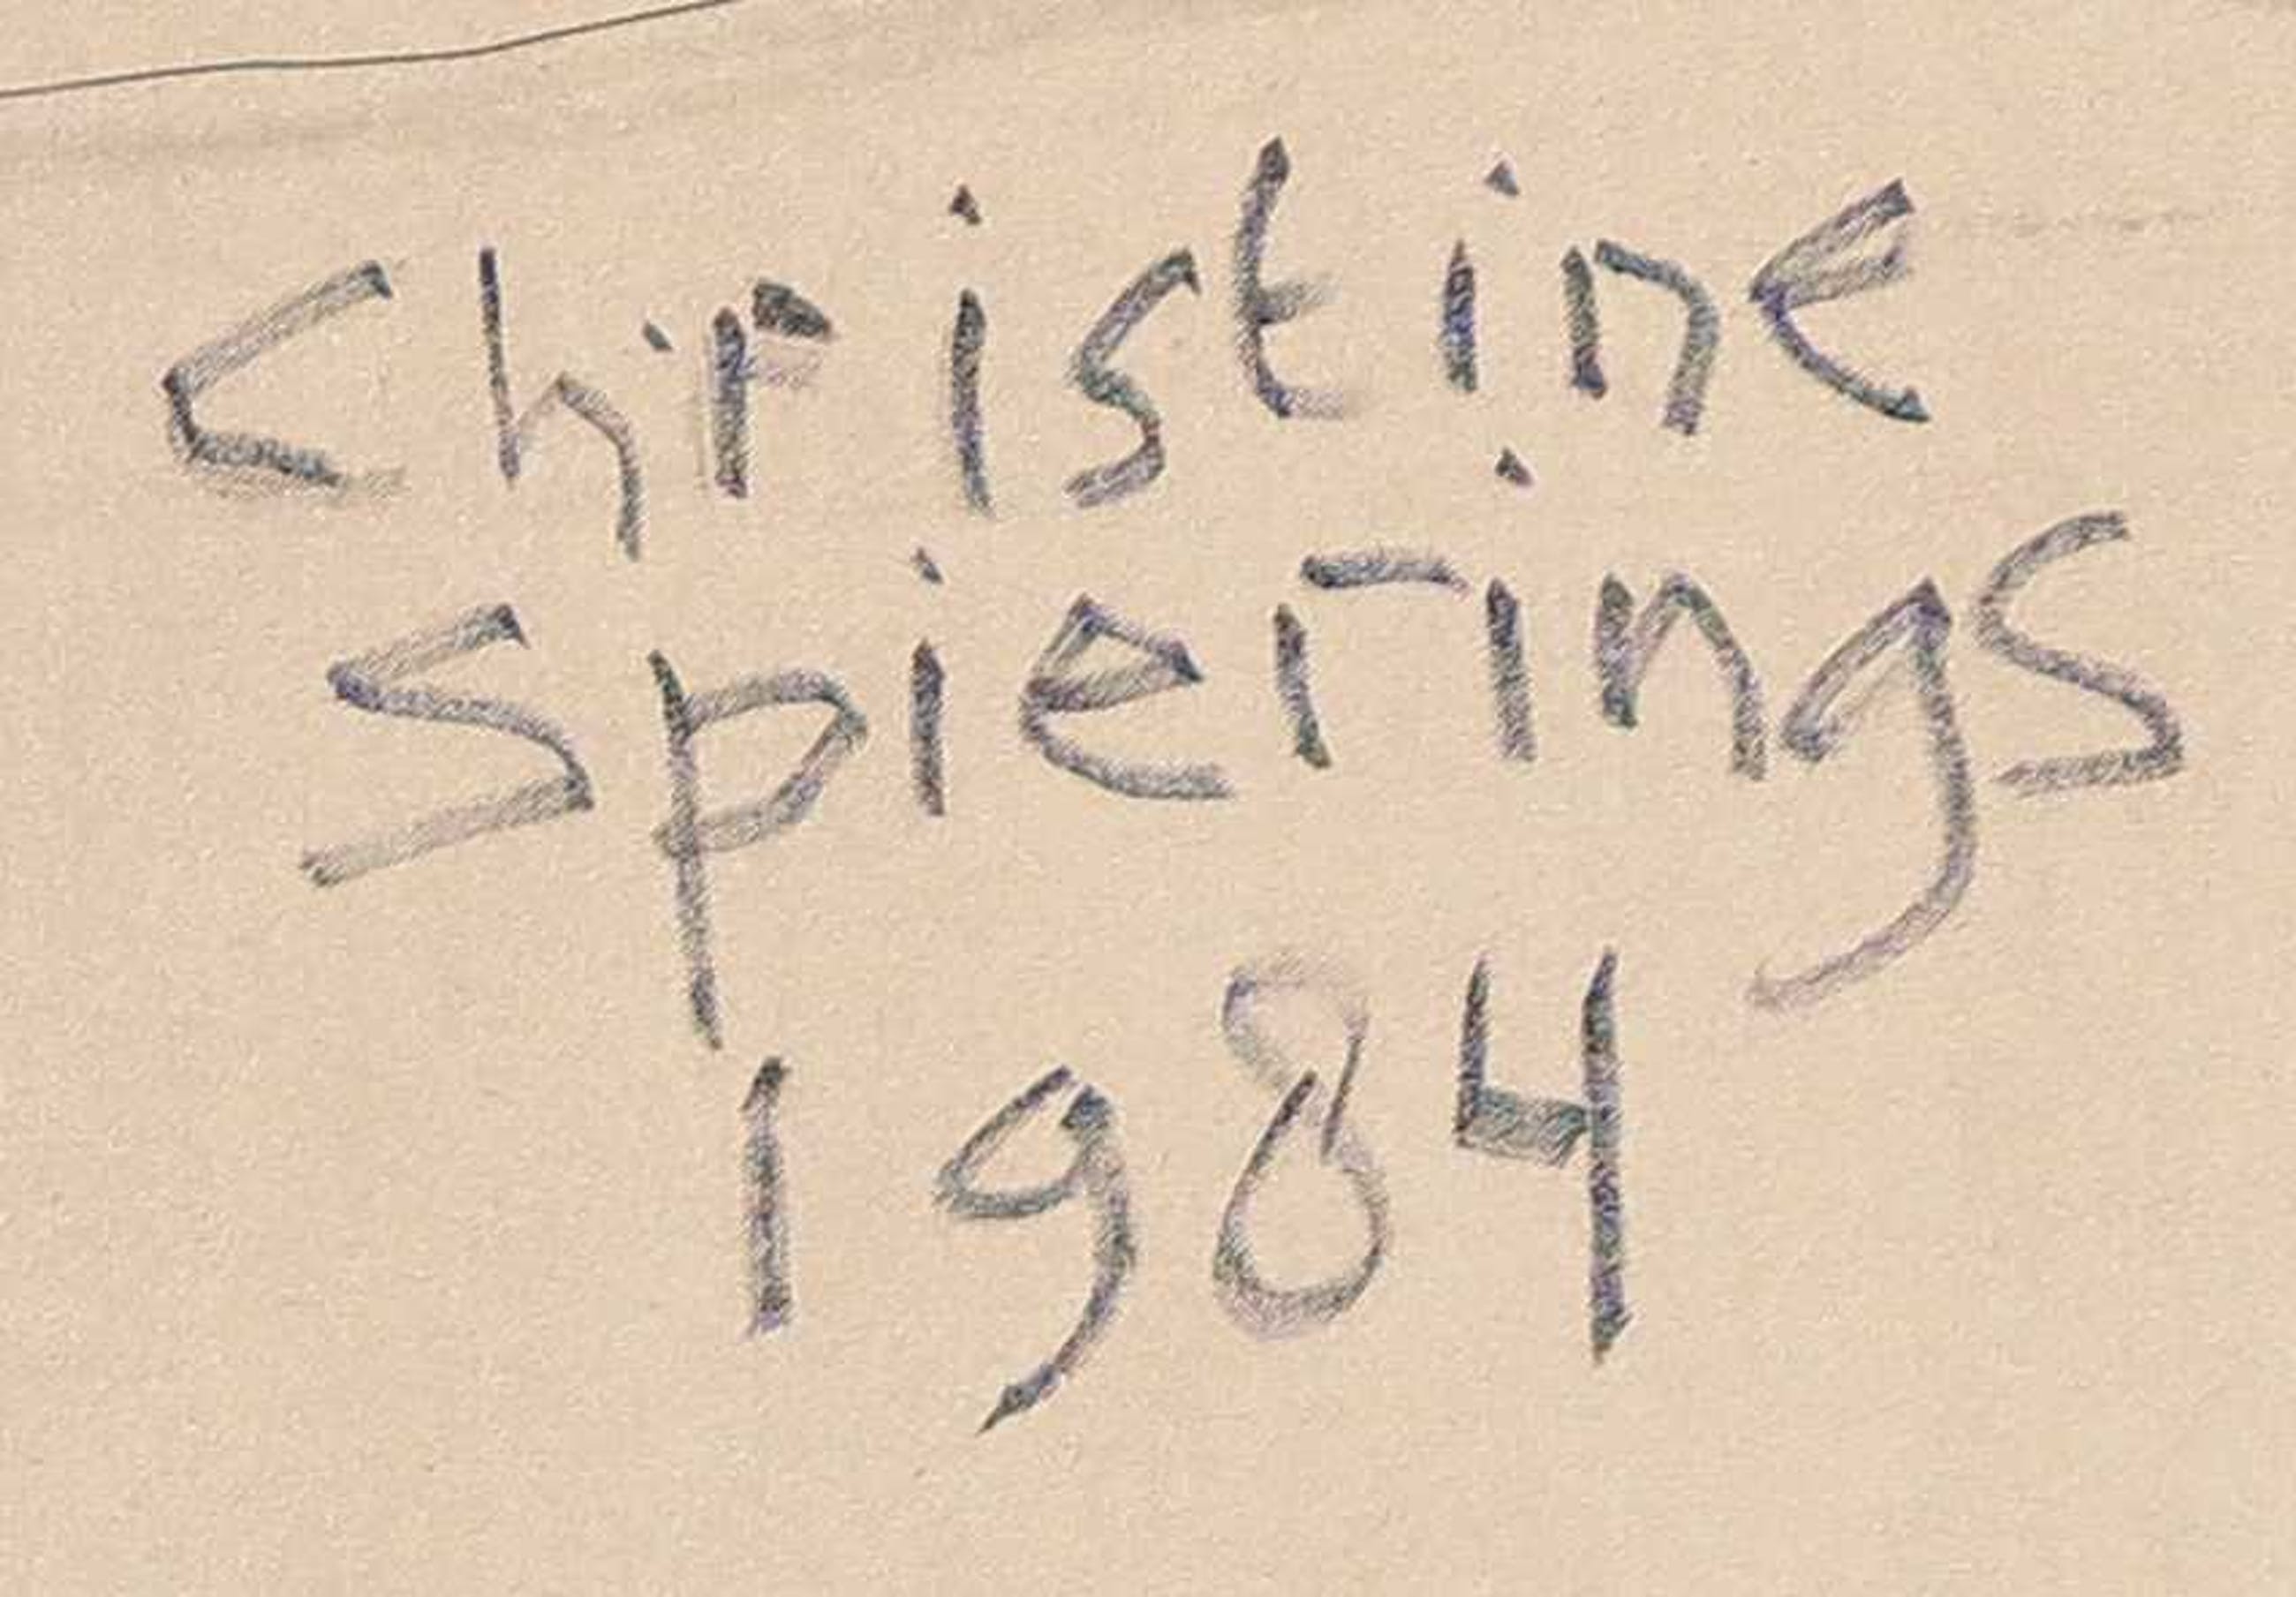 Christine
Spierings
1984